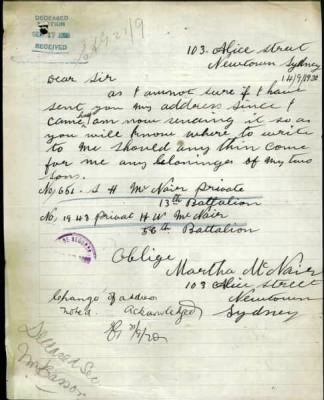 DECEASED
SEP 17 1920
RECEIVED
103 Alice street
Newtown Sydney
14/9/1920
Dear Sir
as I am not sure if I have
sent you my address since I
came here am now sending it so as
you will know where to write
to me should any thin come
for me any beloninges of my two
sons.
No, 661. S H McNair Private
13th Battalion
No, 1943 Privat H W McNair
56th Battalion
Oblige
Martha McNair
103 Alice street
Newtown
Sydney
Change of address
noted. Acknowledged
Deceased Sec